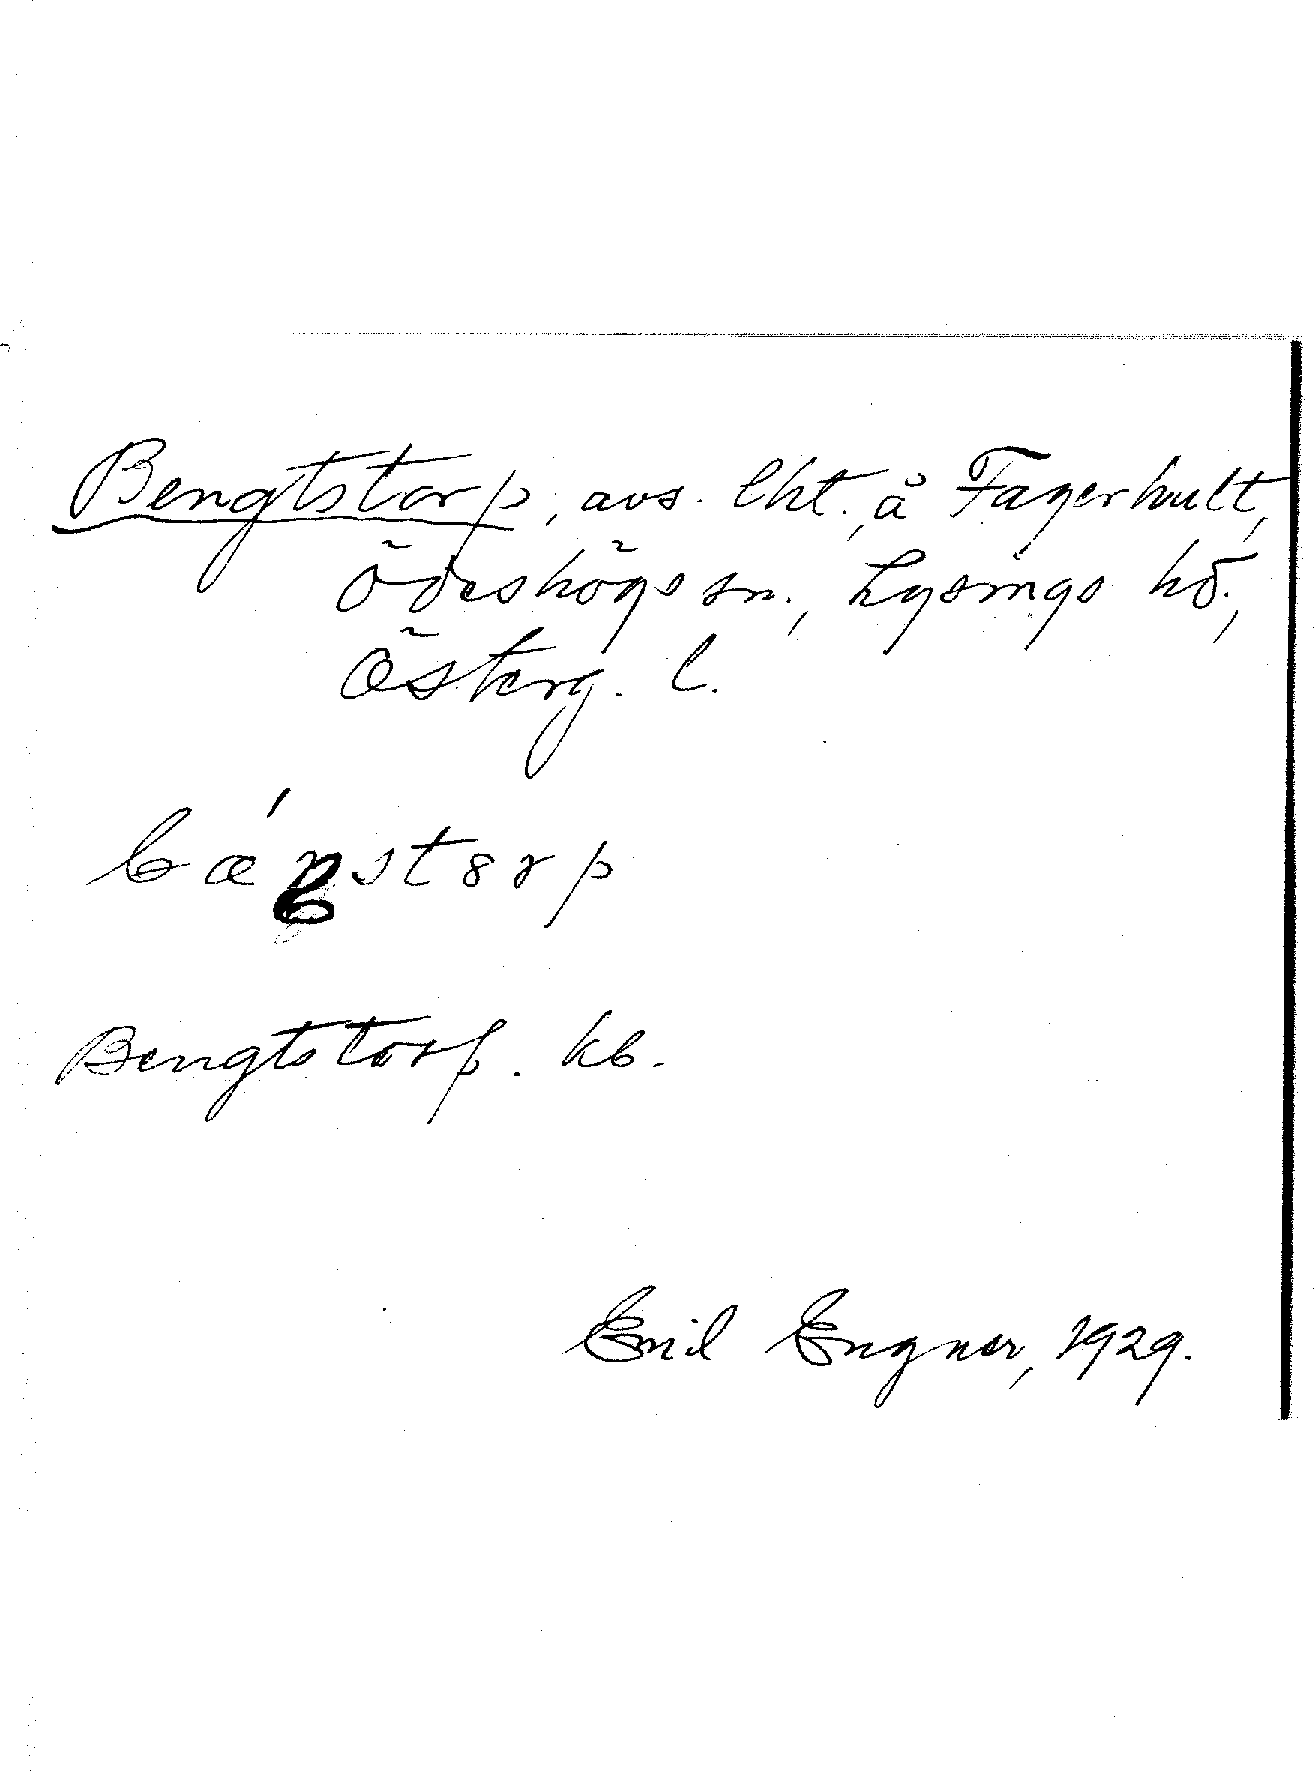 Bengtstorp, avs. lht., å Fagerhult,
Ödeshögs sn., Lysings hd.,
Österg. l.
bæ´ŋstorp
Bengtstorp. kb.
Emil Engner, 1929.